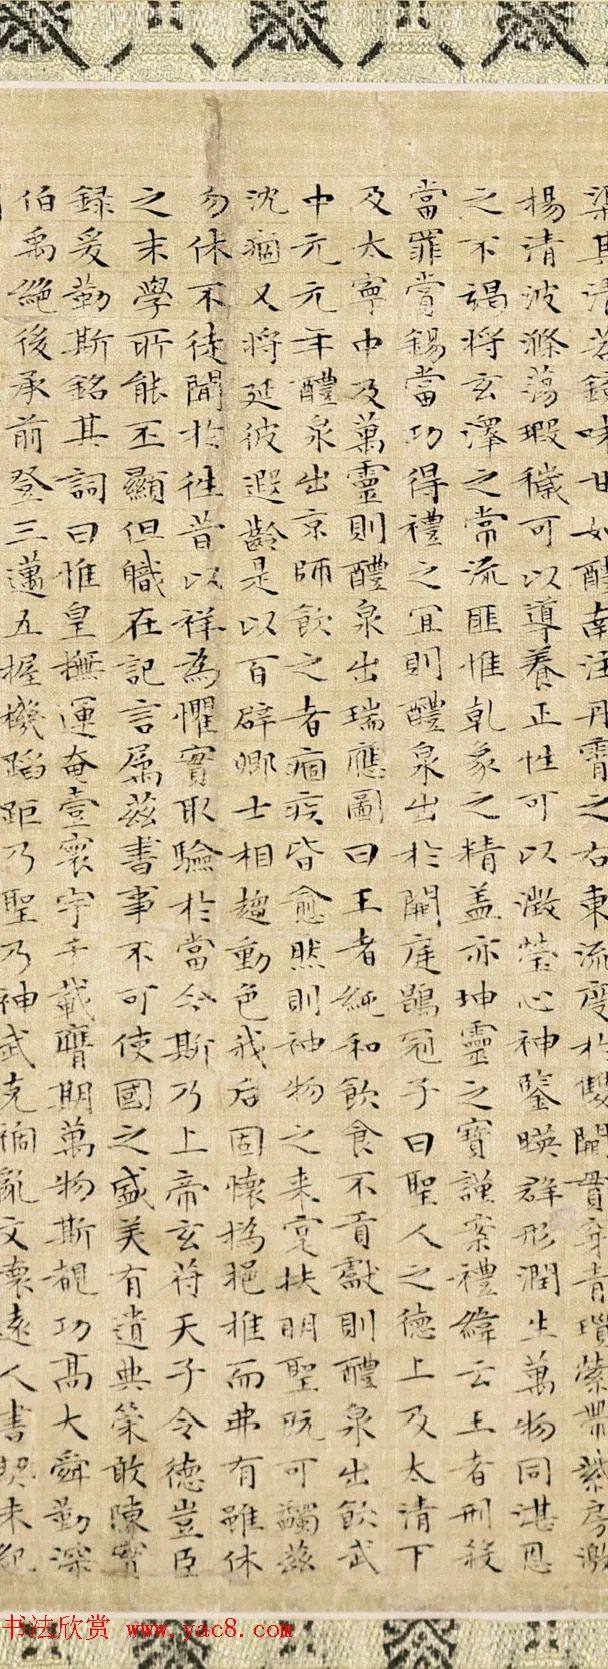 梁其清若鏡味甘如醴南注丹霄之右東流度於雙闕貫穿青瑣縈帶紫房激
楊清波滌蕩瑕穢可以導養正性可以澂瑩心神鑒暎群形潤生萬物同湛恩
之不竭將玄澤之常流匪惟乾象之精盖亦坤靈之寶謹案禮緯云王者刑殺
當罪賞錫當功得禮之宜則醴泉出於闕庭鶡冠子曰聖人之德上及太清下
及太寧中及萬靈則醴泉出瑞應圖曰王者純和飲食不貢獻則醴泉出飲武
中元元年醴泉出京師飲之者痼疾皆愈然則神物之来寔扶明聖既可蠲茲
沈痼又將延彼遐齡是以百辟卿士相趨動色我后固懷撝挹推而弗有雖休
勿休不徒聞於往昔以祥為懼實取驗於當今斯乃上帝玄符天子令德豈臣
之末學所能丕顯但職在記言属茲書事不可使國之盛美有遺典策敢陳實
録爰勒斯銘其詞曰惟皇撫運奄壹寰宇千載膺期萬物斯覩功高大舜勤深
伯禹絶後承前登三邁五握機蹈距乃聖乃神武克禍亂文懷遠人書契未紀
书法欣赏 www.yac8.com